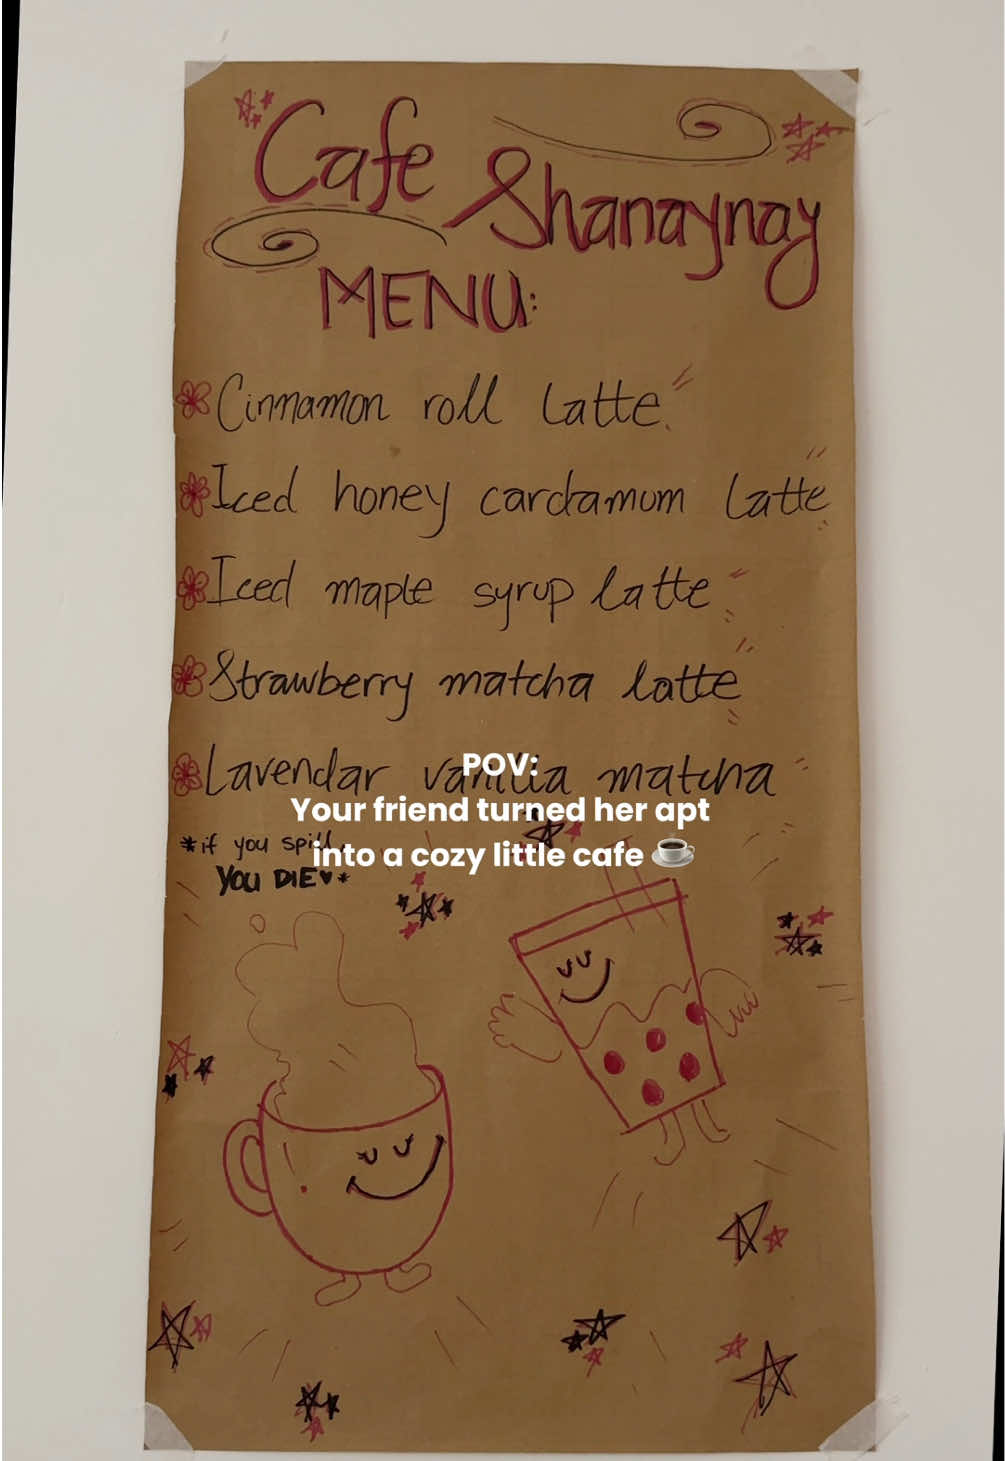 Cafe Shanaynay
MENU:
Cinnamon roll latte
Iced honey cardamum latte
Iced maple syrup latte
Strawberry matcha latte
Lavendar vanilla matcha
*if you spill,
YOU DIE♥*
POV:
Your friend turned her apt
into a cozy little cafe ☕